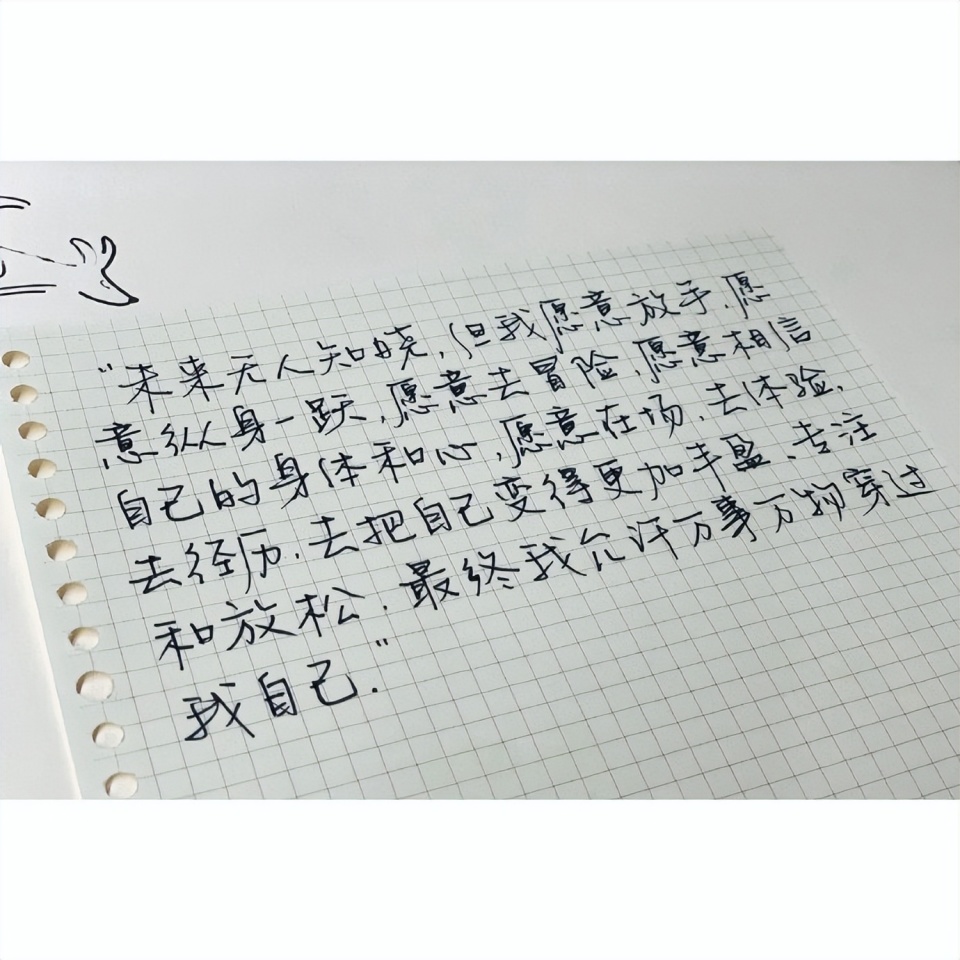 “未来无人知晓，但我愿意放手，愿
意纵身一跃，愿意去冒险，愿意相信
自己的身体和心，愿意在场、去体验，
去经历，去把自己变得更加丰盈、专注
和放松，最终我允许万事万物穿过
我自己。”